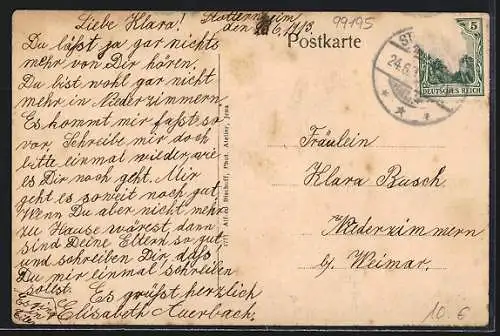 Liebe Klara! Stotternheim
den 24.6.1913.
Du läßt ja gar nichts
mehr von Dir hören.
Du bist wohl gar nicht
mehr in Niederzimmern
Es kommt mir faßt so
vor. Schreibe mir doch
bitte einmal wieder, wie
es Dir noch geht. Mir
geht es soweit noch gut.
Wenn Du aber nicht mehr
zu Hause wärest, dann
sind Deine Eltern so gut
und schreiben Dir, daß
Du mir einmal schreiben
sollst.
Es grüßt herzlich
Elisabeth Auerbach.
99195
Postkarte
5
DEUTSCHES REICH
ST
24.6.
Alfred Bischoff, Phot. Atelier, Jena
Fräulein
Klara Busch
Niederzimmern
b/ Weimar.
10.6